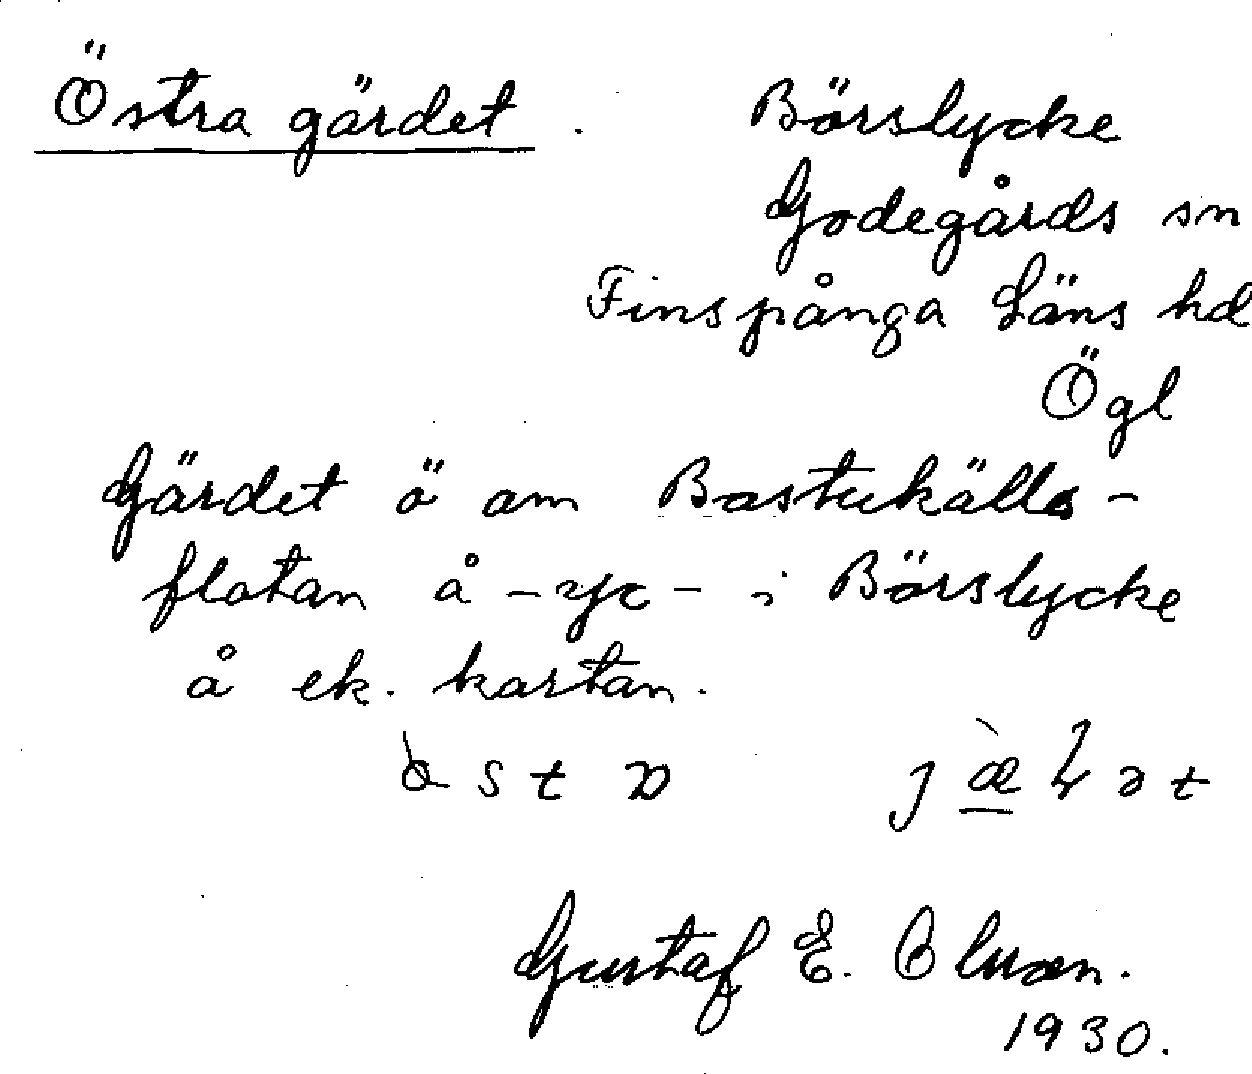 Östra gärdet. Börslycke
Godegårds sn
Finspånga Läns hd
Ögl
Gärdet ö om Bastukälls-
flatan å -yc- i Börslycke
å ek. kartan.
Gustaf E. Olsson.
1930.